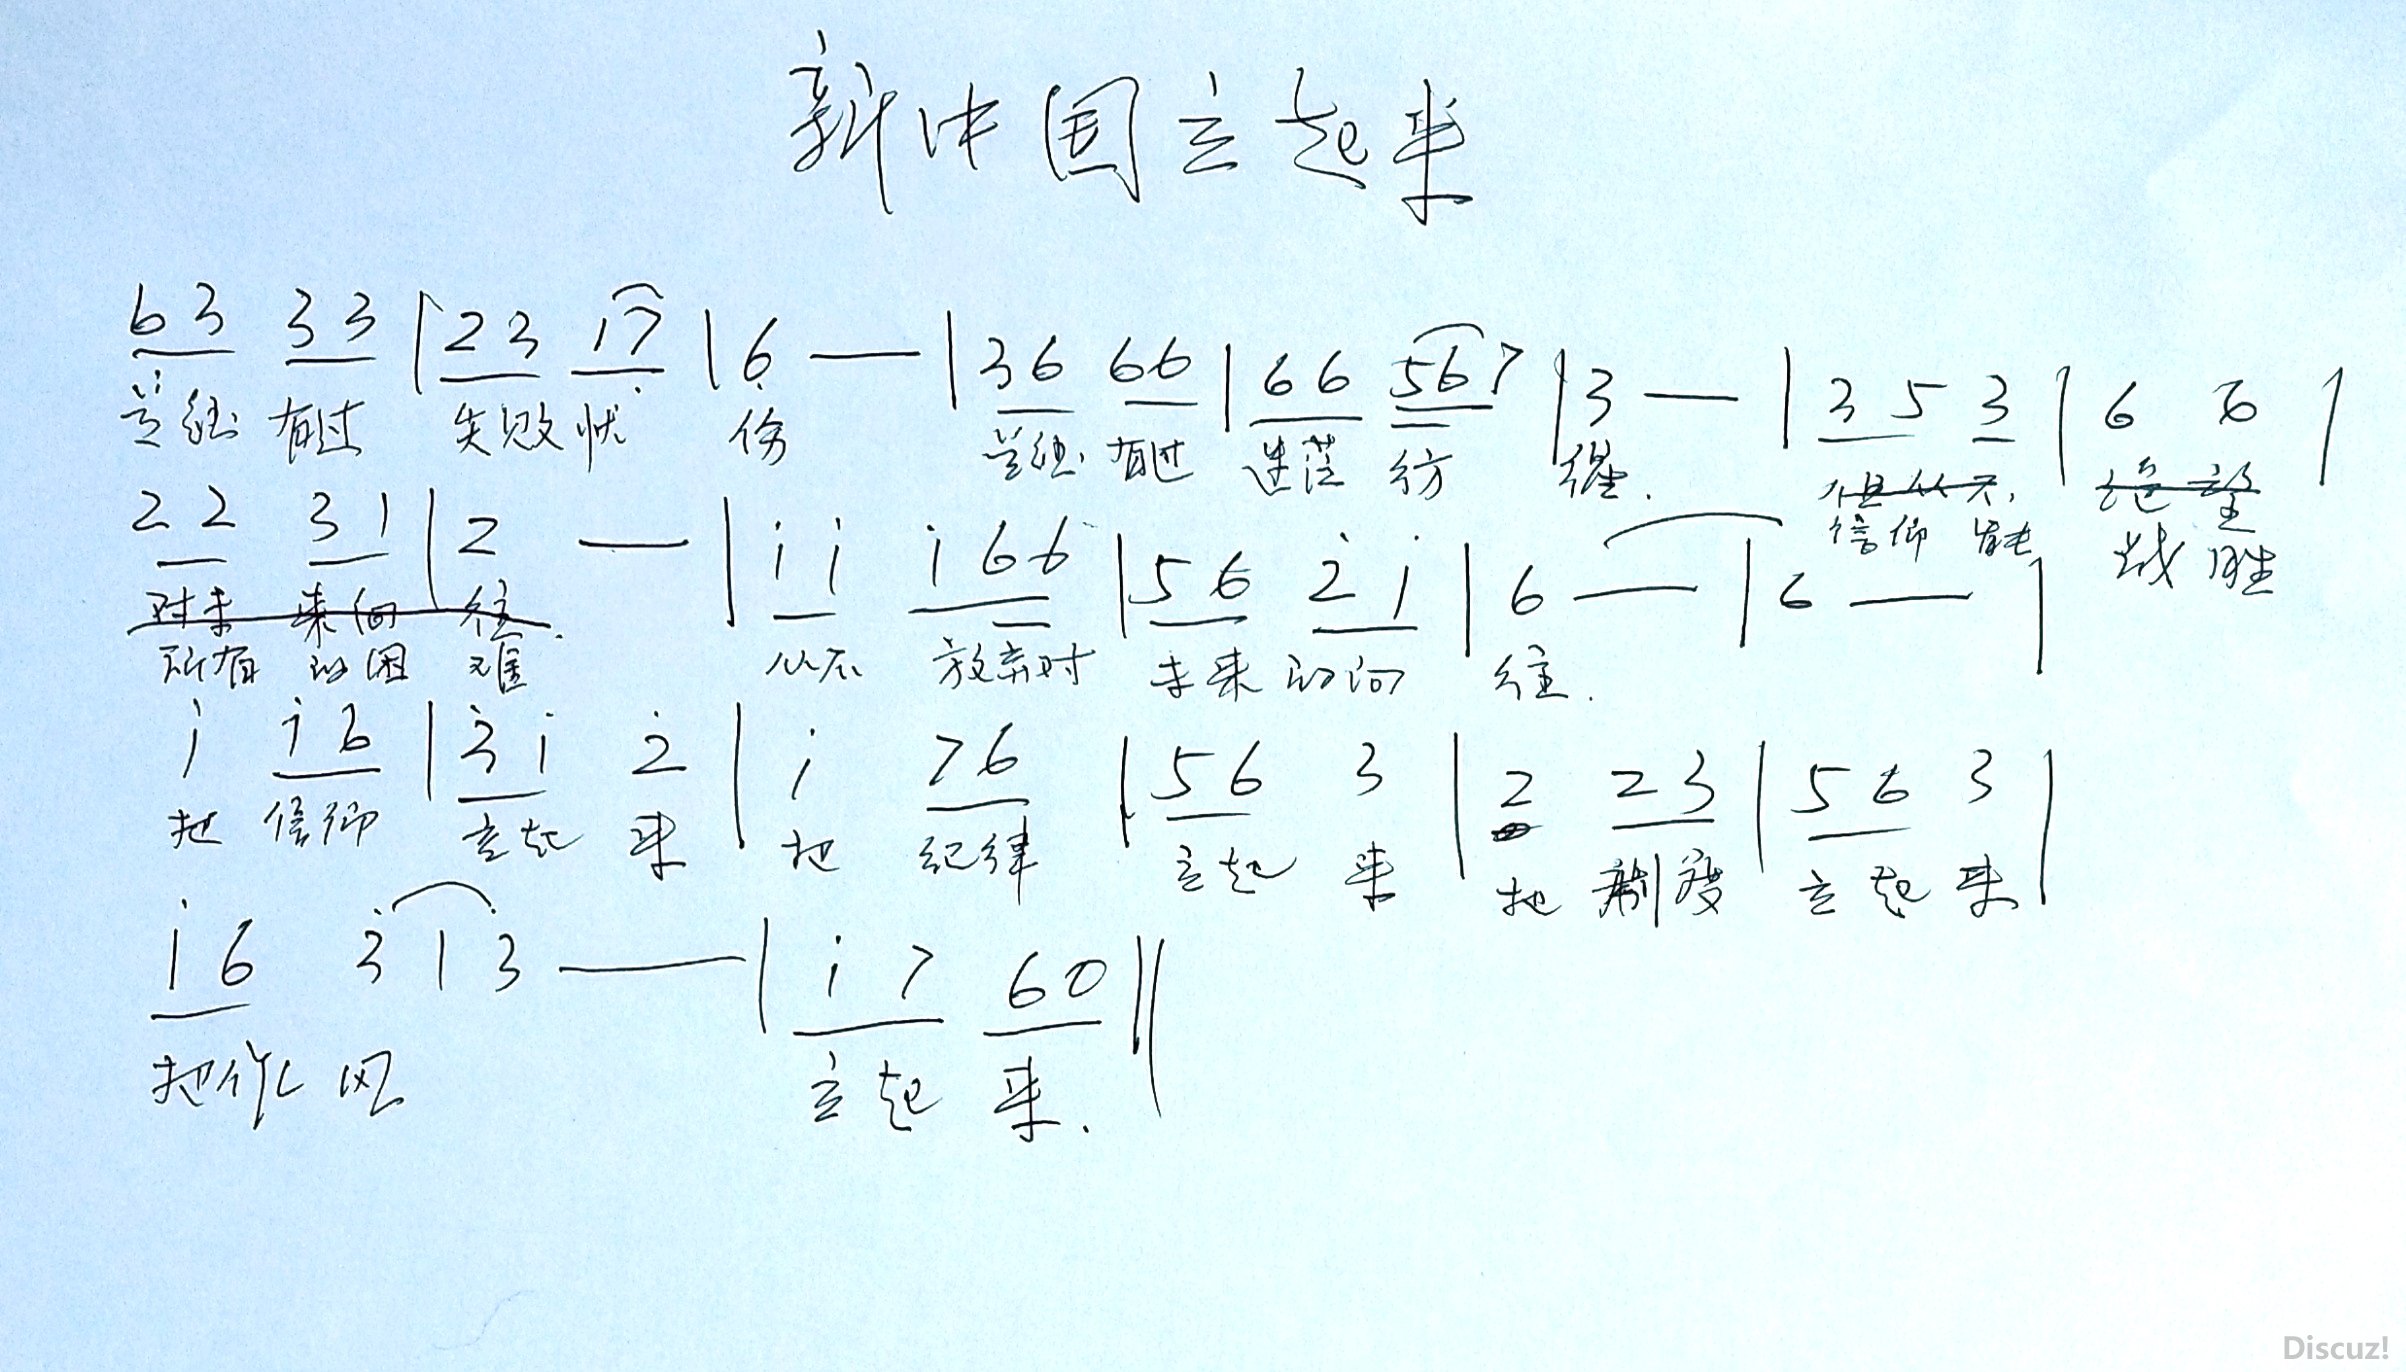 新中国立起来
63 33 | 23 i7 | 6 — | 36 66 | 66 567 | 3 — | 35 3 | 6 6 |
曾经 有过 失败 忧 伤 曾经 有过 迷茫 彷 徨. 但从不, 绝望
信仰 能 战胜
22 31 | 2 — | i i i66 | 56 2̇ i | 6 — | 6 — |
对未 来向 往.
所有 的困 难 从不 放弃对 未来 的向 往.
i i6 | 3̇i 2̇ | i 76 | 56 3 | 2 23 | 56 3 |
把 信仰 立起 来 把 纪律 立起 来 把 制度 立起 来
i6 3̇ 1 3̇ — | i7 60 ‖
把作 风 立起 来.
Discuz!